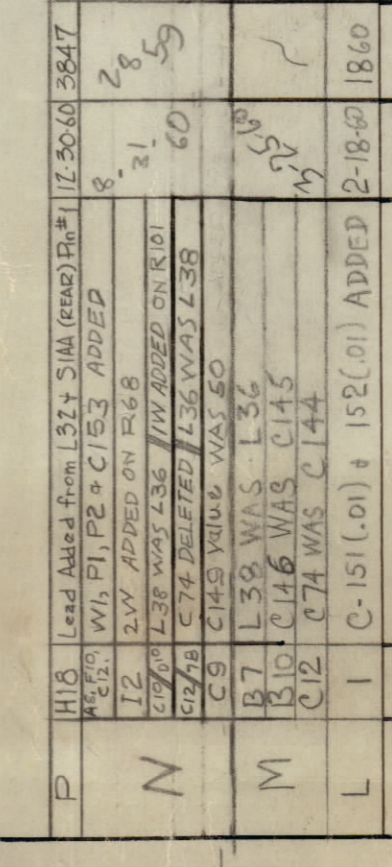 P H18 Lead Added from L32 & S1AA (REAR) Pin #1 12-30-60 3847
N A6, F10, C12, W1, P1, P2 & C153 ADDED 8-31-60 2859
I2 2W ADDED ON R68
C10/D10 L38 WAS L36 // 1W ADDED ON R101
C12/7B C74 DELETED // L36 WAS L38
C9 C149 value WAS 50
M B7 L38 WAS L36
B10 C146 WAS C145
C12 C74 WAS C144
L 1 C-151(.01) & 152(.01) ADDED 2-18-60 1860